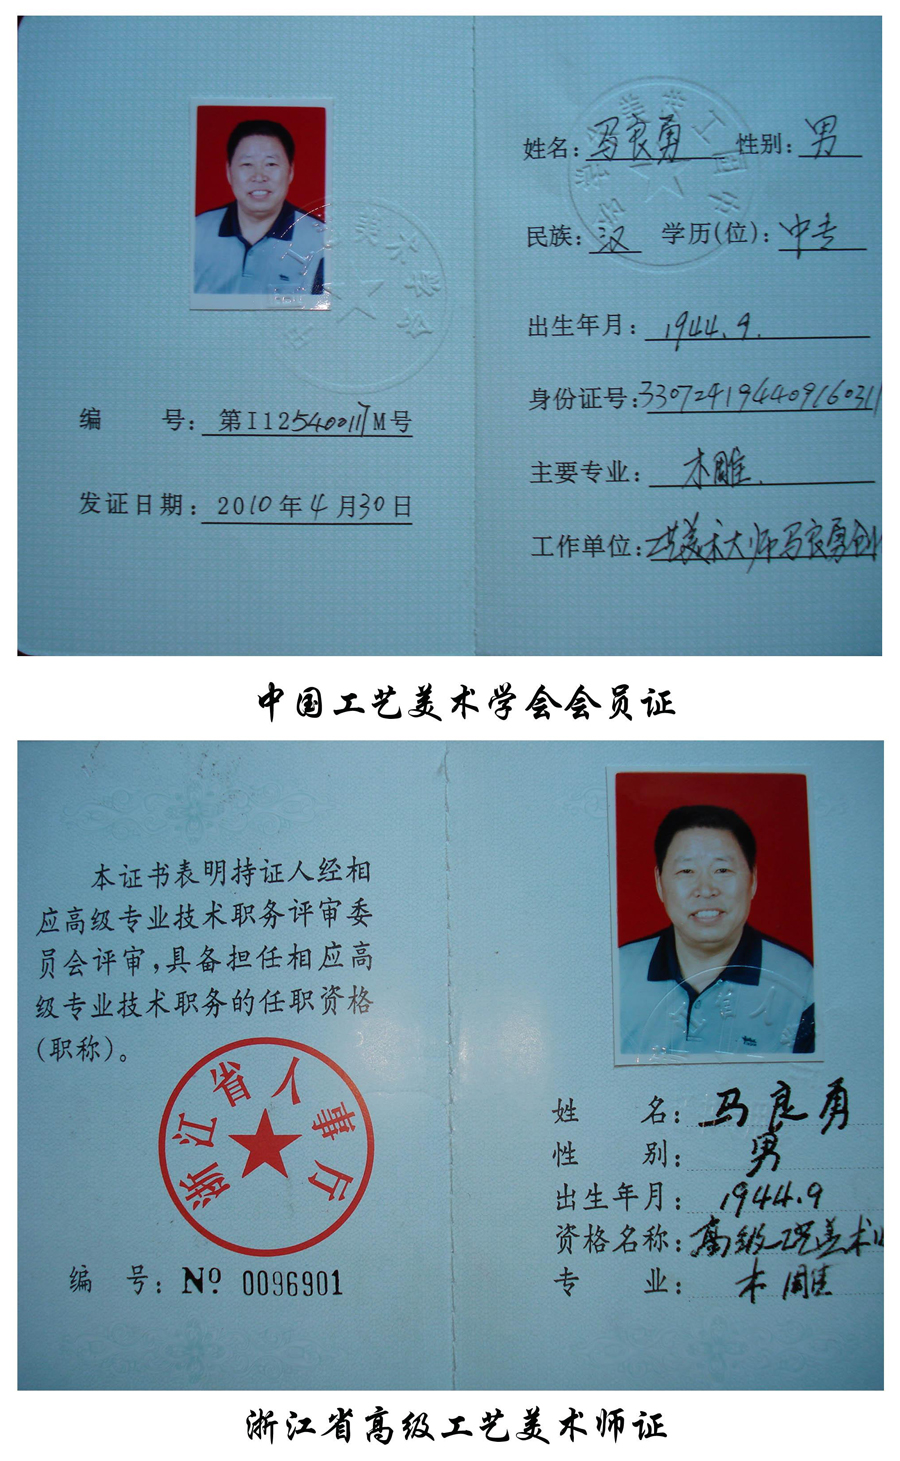 编 号: 第I12540017M号
发证日期: 2010年4月30日
美术学会
姓名: 马良勇 性别: 男
民族: 汉 学历(位): 中专
出生年月: 1944.9.
身份证号: 330724194409160311
主要专业: 木雕.
工作单位: 工艺美术大师马良勇创
中国工艺美术学会会员证
本证书表明持证人经相
应高级专业技术职务评审委
员会评审,具备担任相应高
级专业技术职务的任职资格
(职称)。
浙江省人事厅
编 号: Nº 0096901
省人
姓 名: 马良勇
性 别: 男
出生年月: 1944.9
资格名称: 高级工艺美术
专 业: 木雕
浙江省高级工艺美术师证